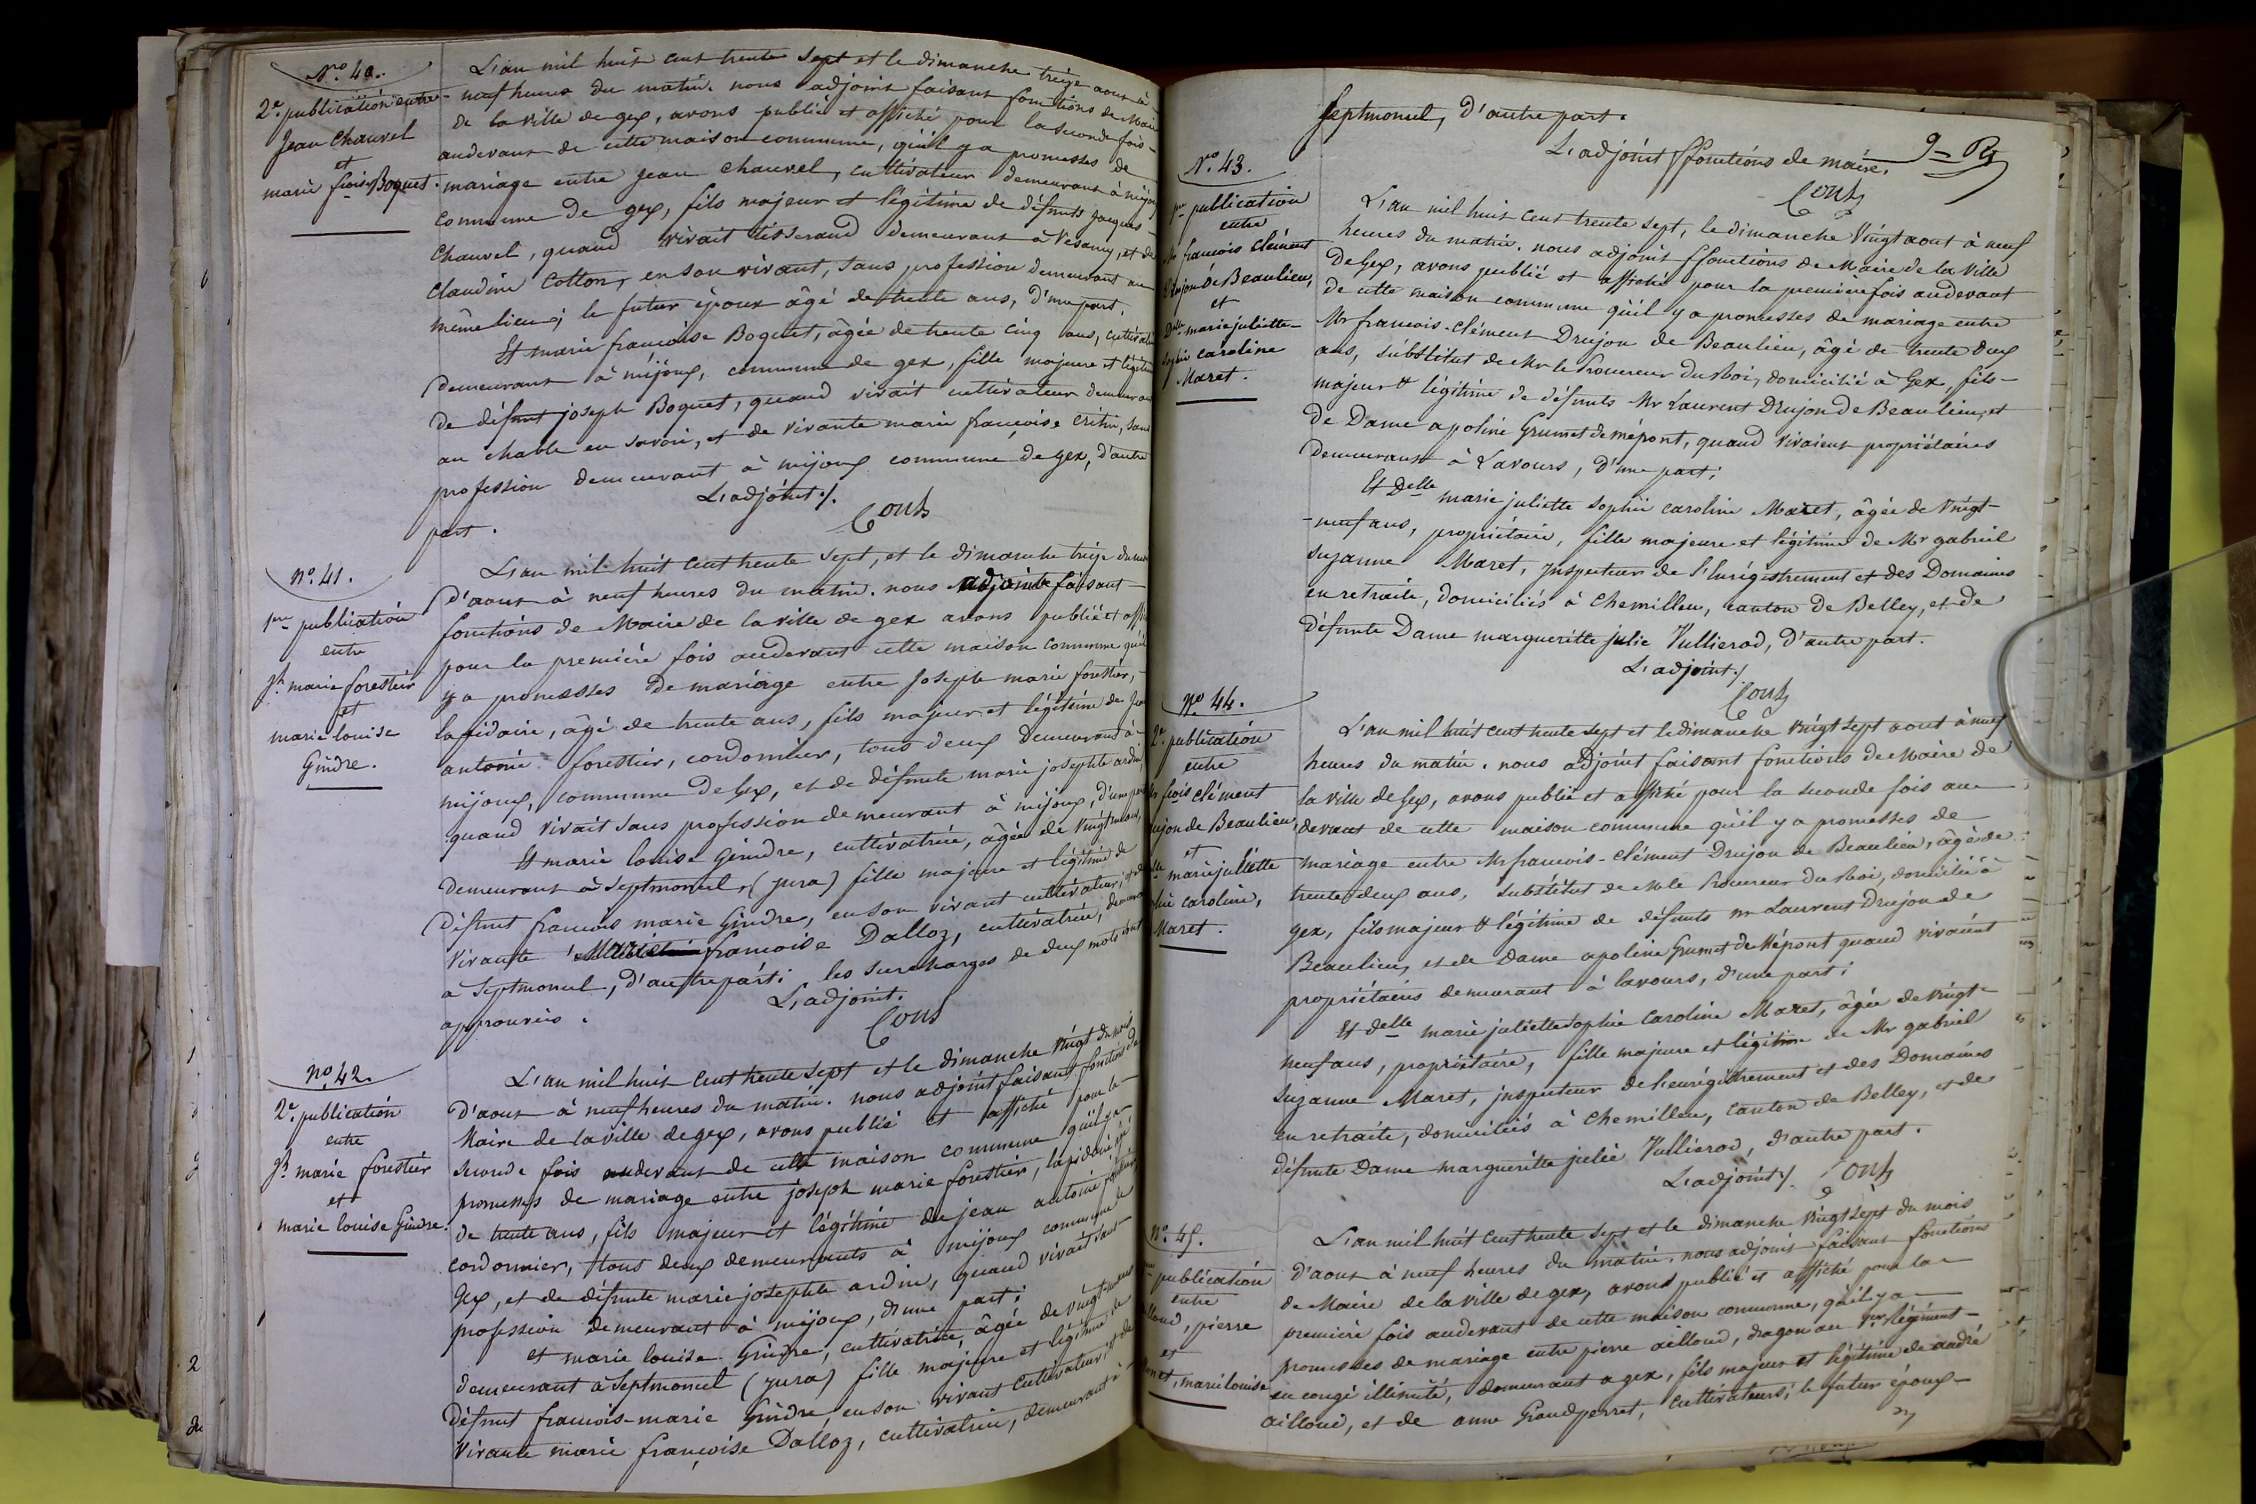 No. 40.
2e. publication entre
Jean Chauvel
et
marie fcoise Boquet.
L'an mil huit cent trente sept et le dimanche treize aout à
neuf heures du matin. nous adjoint faisant fonctions de Maire
de la ville de gex, avons publié et affiché pour la seconde fois
audevant de cette maison commune, qu'il y a promesses de
mariage entre Jean Chauvel, cultivateur demeurant à mijoux
commune de gex, fils majeur et légitime de défunts jacques
Chauvel, quand vivait tisserand demeurant à Vesancy, et de
Claudine Cotton, en son vivant, sans profession demeurant au
même lieu; le futur époux âgé de trente ans, d'une part.
Et marie françoise Boquet, âgée de trente cinq ans, cultivatrice
demeurant à mijoux, commune de gex, fille majeure et légitime
de défunt joseph Boquet, quand vivait cultivateur demeurant
au chable en savoie, et de vivante marie françoise Critin, sans
profession demeurant à mijoux commune de gex, d'autre
part.
L'adjoint ./.
Couts
no. 41.
1re publication
entre
Jh. marie forestier
et
marie louise
Gindre.
L'an mil huit cent trente sept, et le dimanche treize du mois
d'aout à neuf heures du matin. nous adjoint faisant
fonctions de Maire de la ville de gex avons publié et affiché
pour la première fois audevant cette maison commune qu'il
y a promesses de mariage entre Joseph marie forestier,
lapidaire, âgé de trente ans, fils majeur et légitime de Jean
antoine forestier, cordonnier, tous deux demeurant à
mijoux, commune de Gex, et de défunte marie josephte ardin,
quand vivait sans profession demeurant à mijoux, d'une part
Et marie louise Gindre, cultivatrice, âgée de vingt neuf ans,
demeurant à Septmoncel, (jura) fille majeure et légitime de
défunt françois marie Gindre, en son vivant cultivateur, et de
vivante Marie françoise Dalloz, cultivatrice, demeurant
à Septmoncel, d'autre part. les surcharges de deux mots sont
approuvées.
L'adjoint.
Couts
no. 42.
2e. publication
entre
Jh. marie forestier
et
marie louise Gindre.
L'an mil huit cent trente sept et le dimanche vingt du mois
d'aout à neuf heures du matin. nous adjoint faisant fonctions de
Maire de la ville de gex, avons publié et affiché pour la
seconde fois audevant de cette maison commune qu'il y a
promesses de mariage entre joseph marie forestier, lapidaire, âgé
de trente ans, fils majeur et légitime de jean antoine forestier,
cordonnier, tous deux demeurants à mijoux commune de
Gex, et de défunte marie josephte ardin, quand vivait sans
profession demeurant à mijoux, d'une part;
et marie louise Gindre, cultivatrice, âgée de vingt neuf ans
demeurant à Septmoncel (jura) fille majeure et légitime de
défunt françois-marie Gindre, en son vivant cultivateur; et de
vivante marie françoise Dalloz, cultivatrice, demeurant à
Septmoncel, d'autre part.
L'adjoint ffonctions de maire.
Couts
No. 43.
1re publication
entre
Mr françois Clément
Drujon de Beaulieu,
et
Delle marie juliette
sophie caroline
Maret.
L'an mil huit cent trente sept, le dimanche vingt aout à neuf
heures du matin. nous adjoint ffonctions de Maire de la ville
de Gex, avons publié et affiché pour la première fois audevant
de cette maison commune qu'il y a promesses de mariage entre
Mr françois-clément Drujon de Beaulieu, âgé de trente deux
ans, substitut de Mr le Procureur du Roi, domicilié à Gex, fils
majeur et légitime de défunts Mr Laurent Drujon de Beaulieu, et
de Dame apoline Grumet de mépont, quand vivaient propriétaires
demeurant à Lavours, d'une part;
Et Delle marie juliette sophie caroline Maret, âgée de vingt-
-neuf ans, propriétaire, fille majeure et légitime de Mr gabriel
suzanne Maret, inspecteur de l'Enregistrement et des Domaines
en retraite, domiciliés à Chemilleu, canton de Belley, et de
défunte Dame marguerite julie Vullierod, d'autre part.
L'adjoint ./.
Couts
No 44.
2e. publication
entre
Mr fcois clément
Drujon de Beaulieu,
et
Delle marie juliette
sophie caroline,
Maret.
L'an mil huit cent trente sept et le dimanche vingt sept aout à neuf
heures du matin. nous adjoint faisant fonctions de Maire de
la ville de Gex, avons publié et affiché pour la seconde fois au
devant de cette maison commune qu'il y a promesses de
mariage entre Mr françois-clément Drujon de Beaulieu, âgé de
trente deux ans, substitut de Mr le Procureur du Roi, domicilié à
gex, fils majeur et légitime de défunts mr Laurent Drujon de
Beaulieu, et de Dame apoline Grumet de Mépont quand vivaient
propriétaires demeurant à lavours, d'une part;
Et delle marie juliette sophie Caroline Maret, âgée de vingt
neuf ans, propriétaire, fille majeure et légitime de Mr gabriel
Suzanne Maret, inspecteur de l'enregistrement et des Domaines
en retraite, domiciliés à Chemilleu, canton de Belley, et de
défunte Dame marguerite julie Vullierod, d'autre part.
L'adjoint ./. Couts
no. 45.
publication
entre
ailloud, pierre
et
marie louise
L'an mil huit cent trente sept et le dimanche vingt sept du mois
d'aout à neuf heures du matin. nous adjoint faisant fonctions
de Maire de la ville de gex, avons publié et affiché pour la
première fois audevant de cette maison commune, qu'il y a
promesses de mariage entre pierre ailloud, dragon au 1er régiment
en congé illimité, demeurant a gex, fils majeur et légitime de andré
ailloud, et de anne Grandperret, cultivateurs; le futur époux